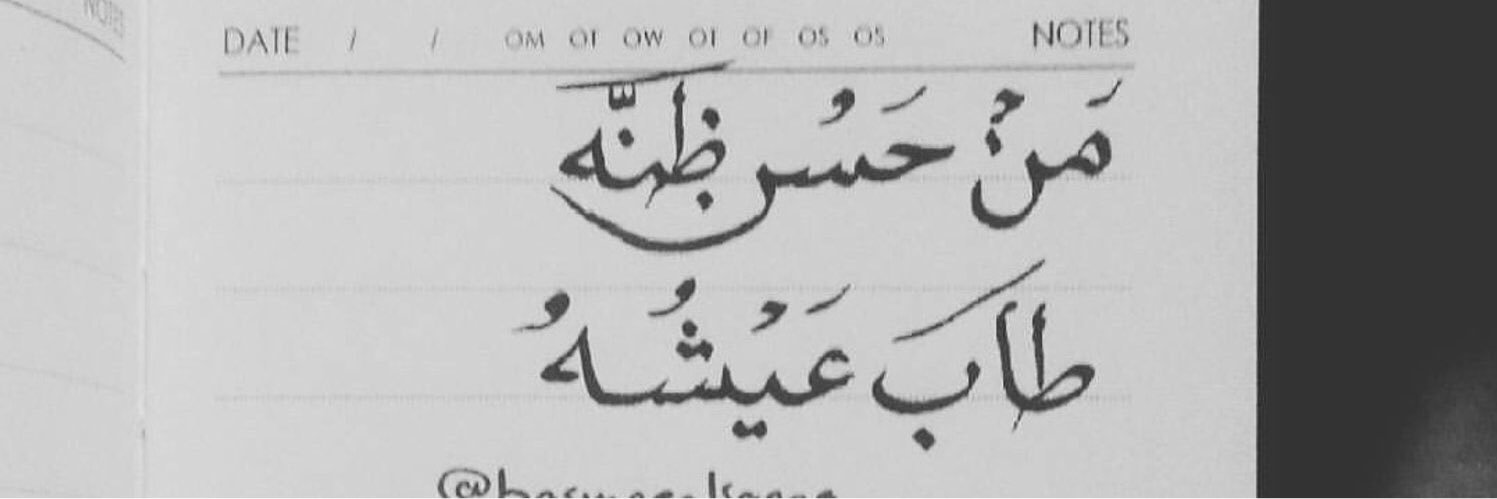 DATE / / OM OT OW OT OF OS OS NOTES
مَنْ حَسُن ظَنّه
طَابَ عَيْشُهُ